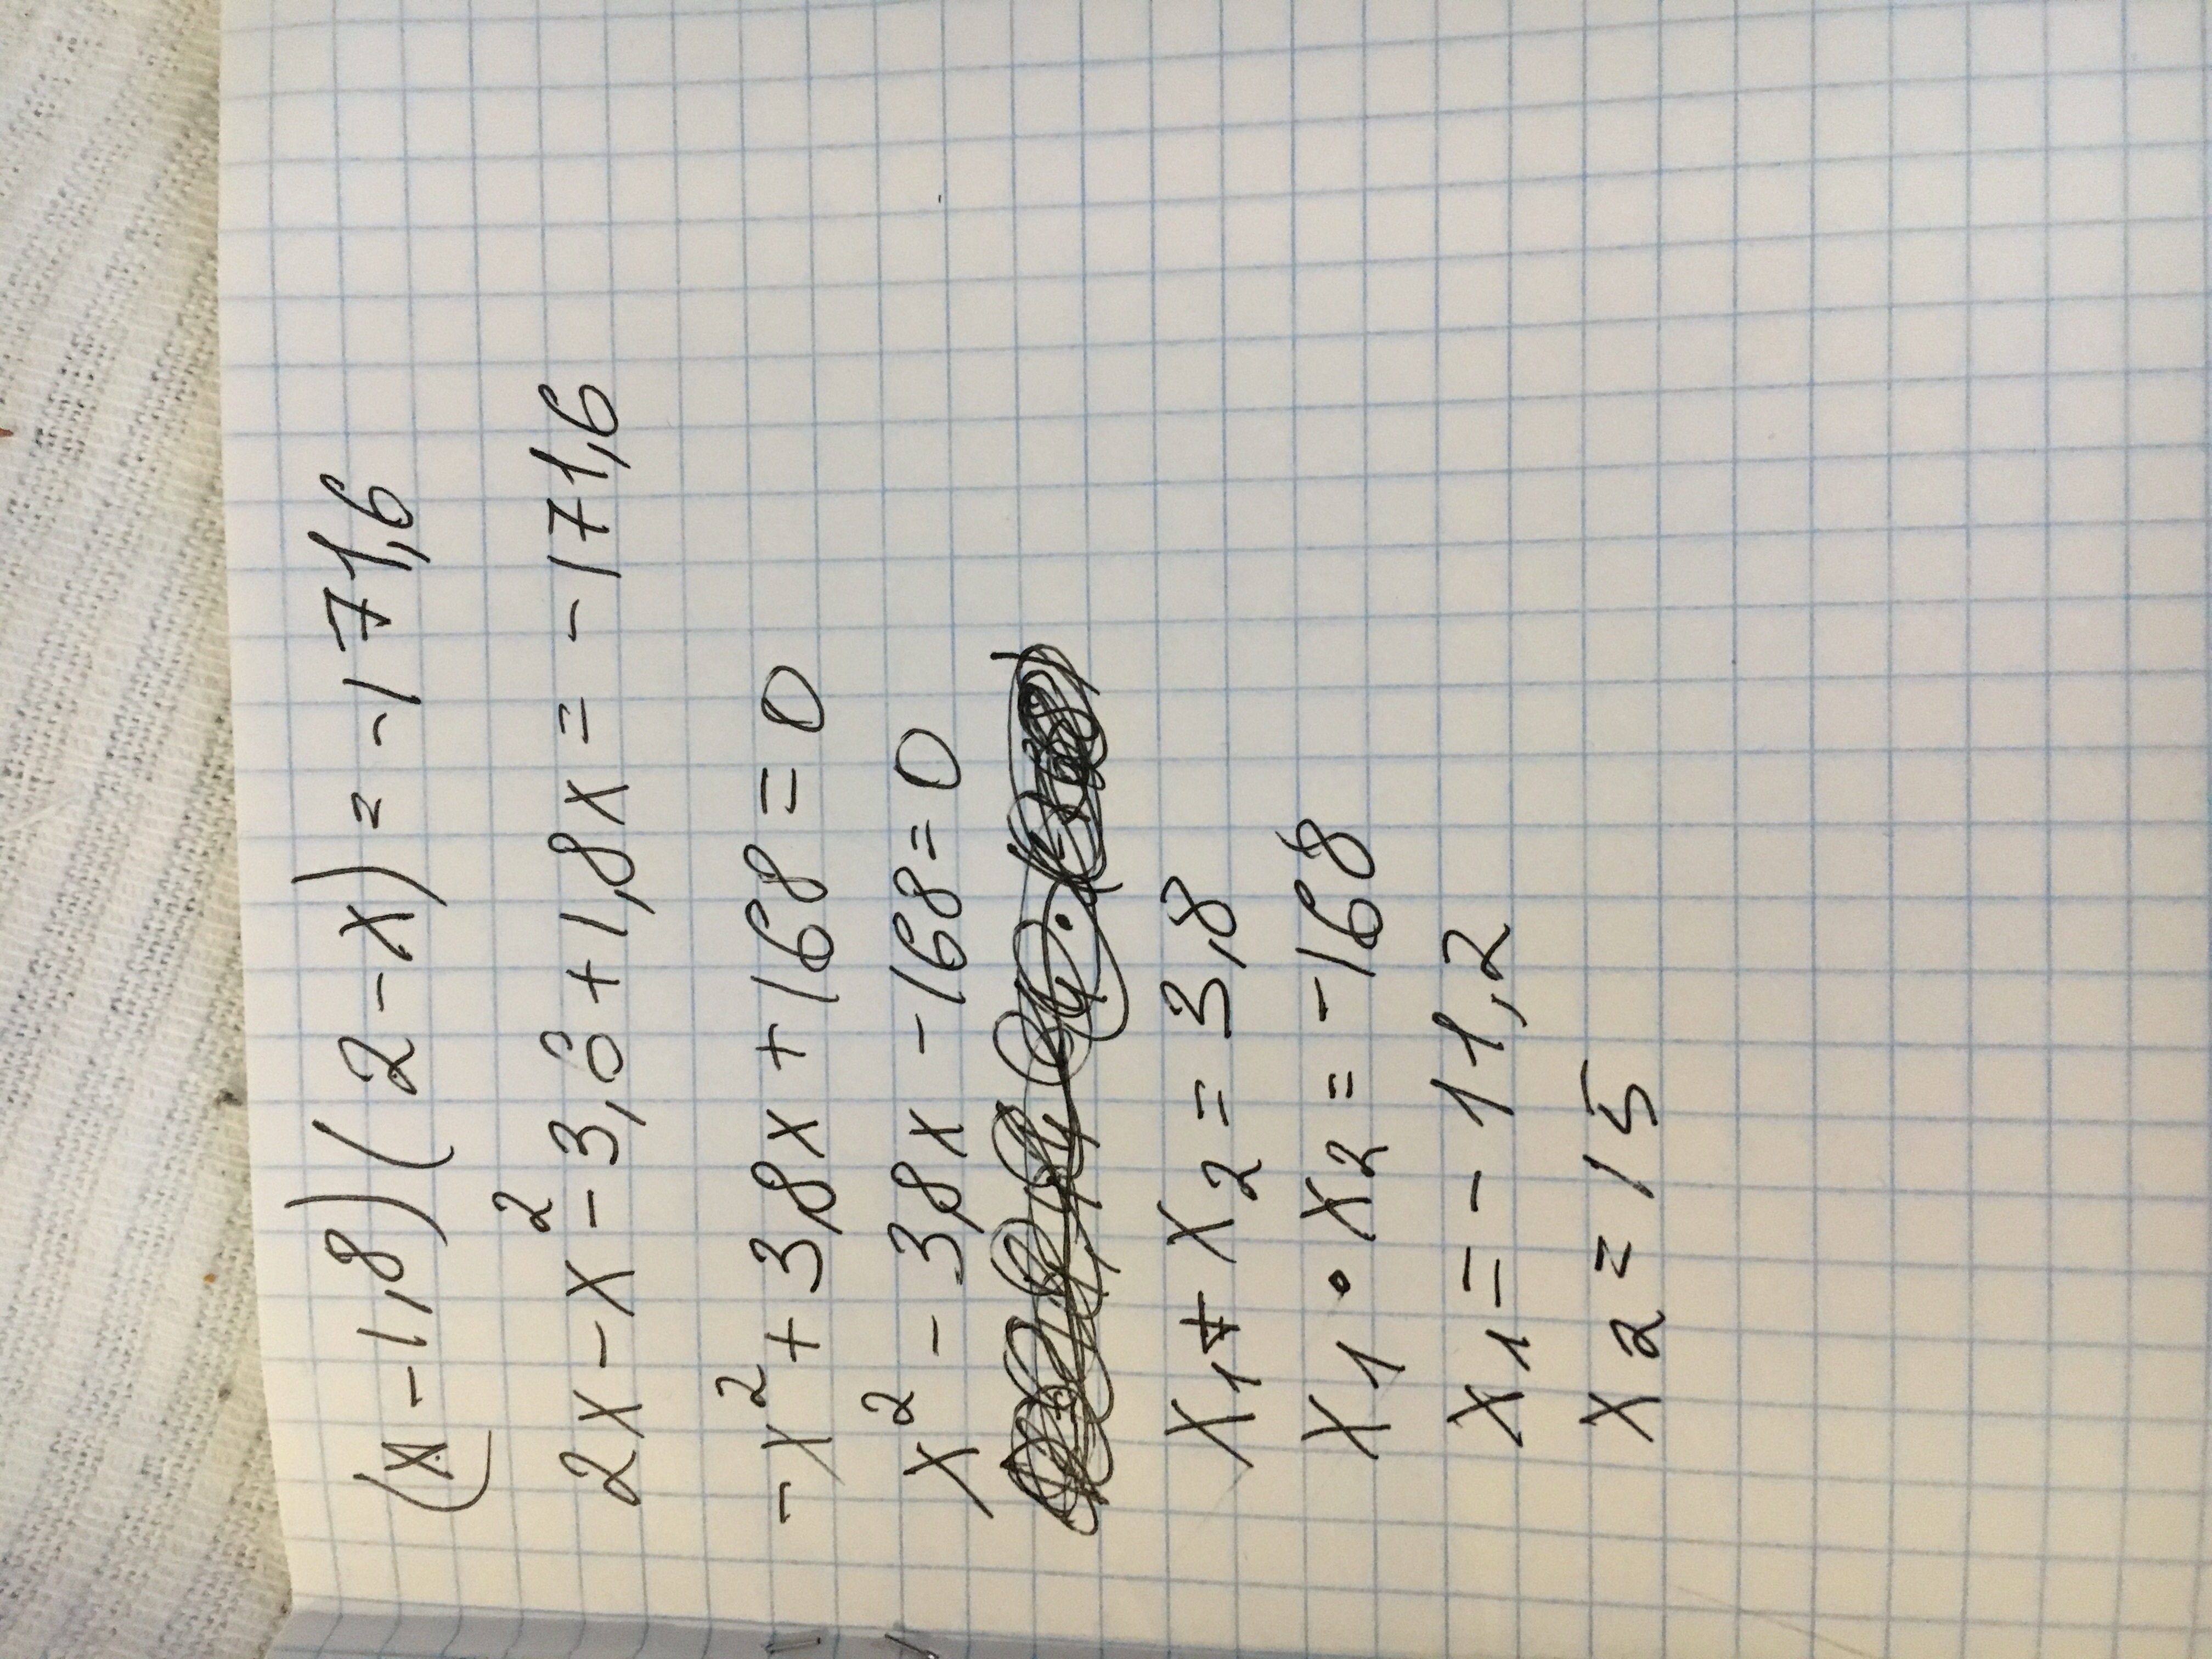 (x-1,8)(2-x)=-171,6
2x-x²-3,6+1,8x=-171,6
-x²+3,8x+168=0
x²-3,8x-168=0
x₁+x₂=3,8
x₁·x₂=-168
x₁=-11,2
x₂=15